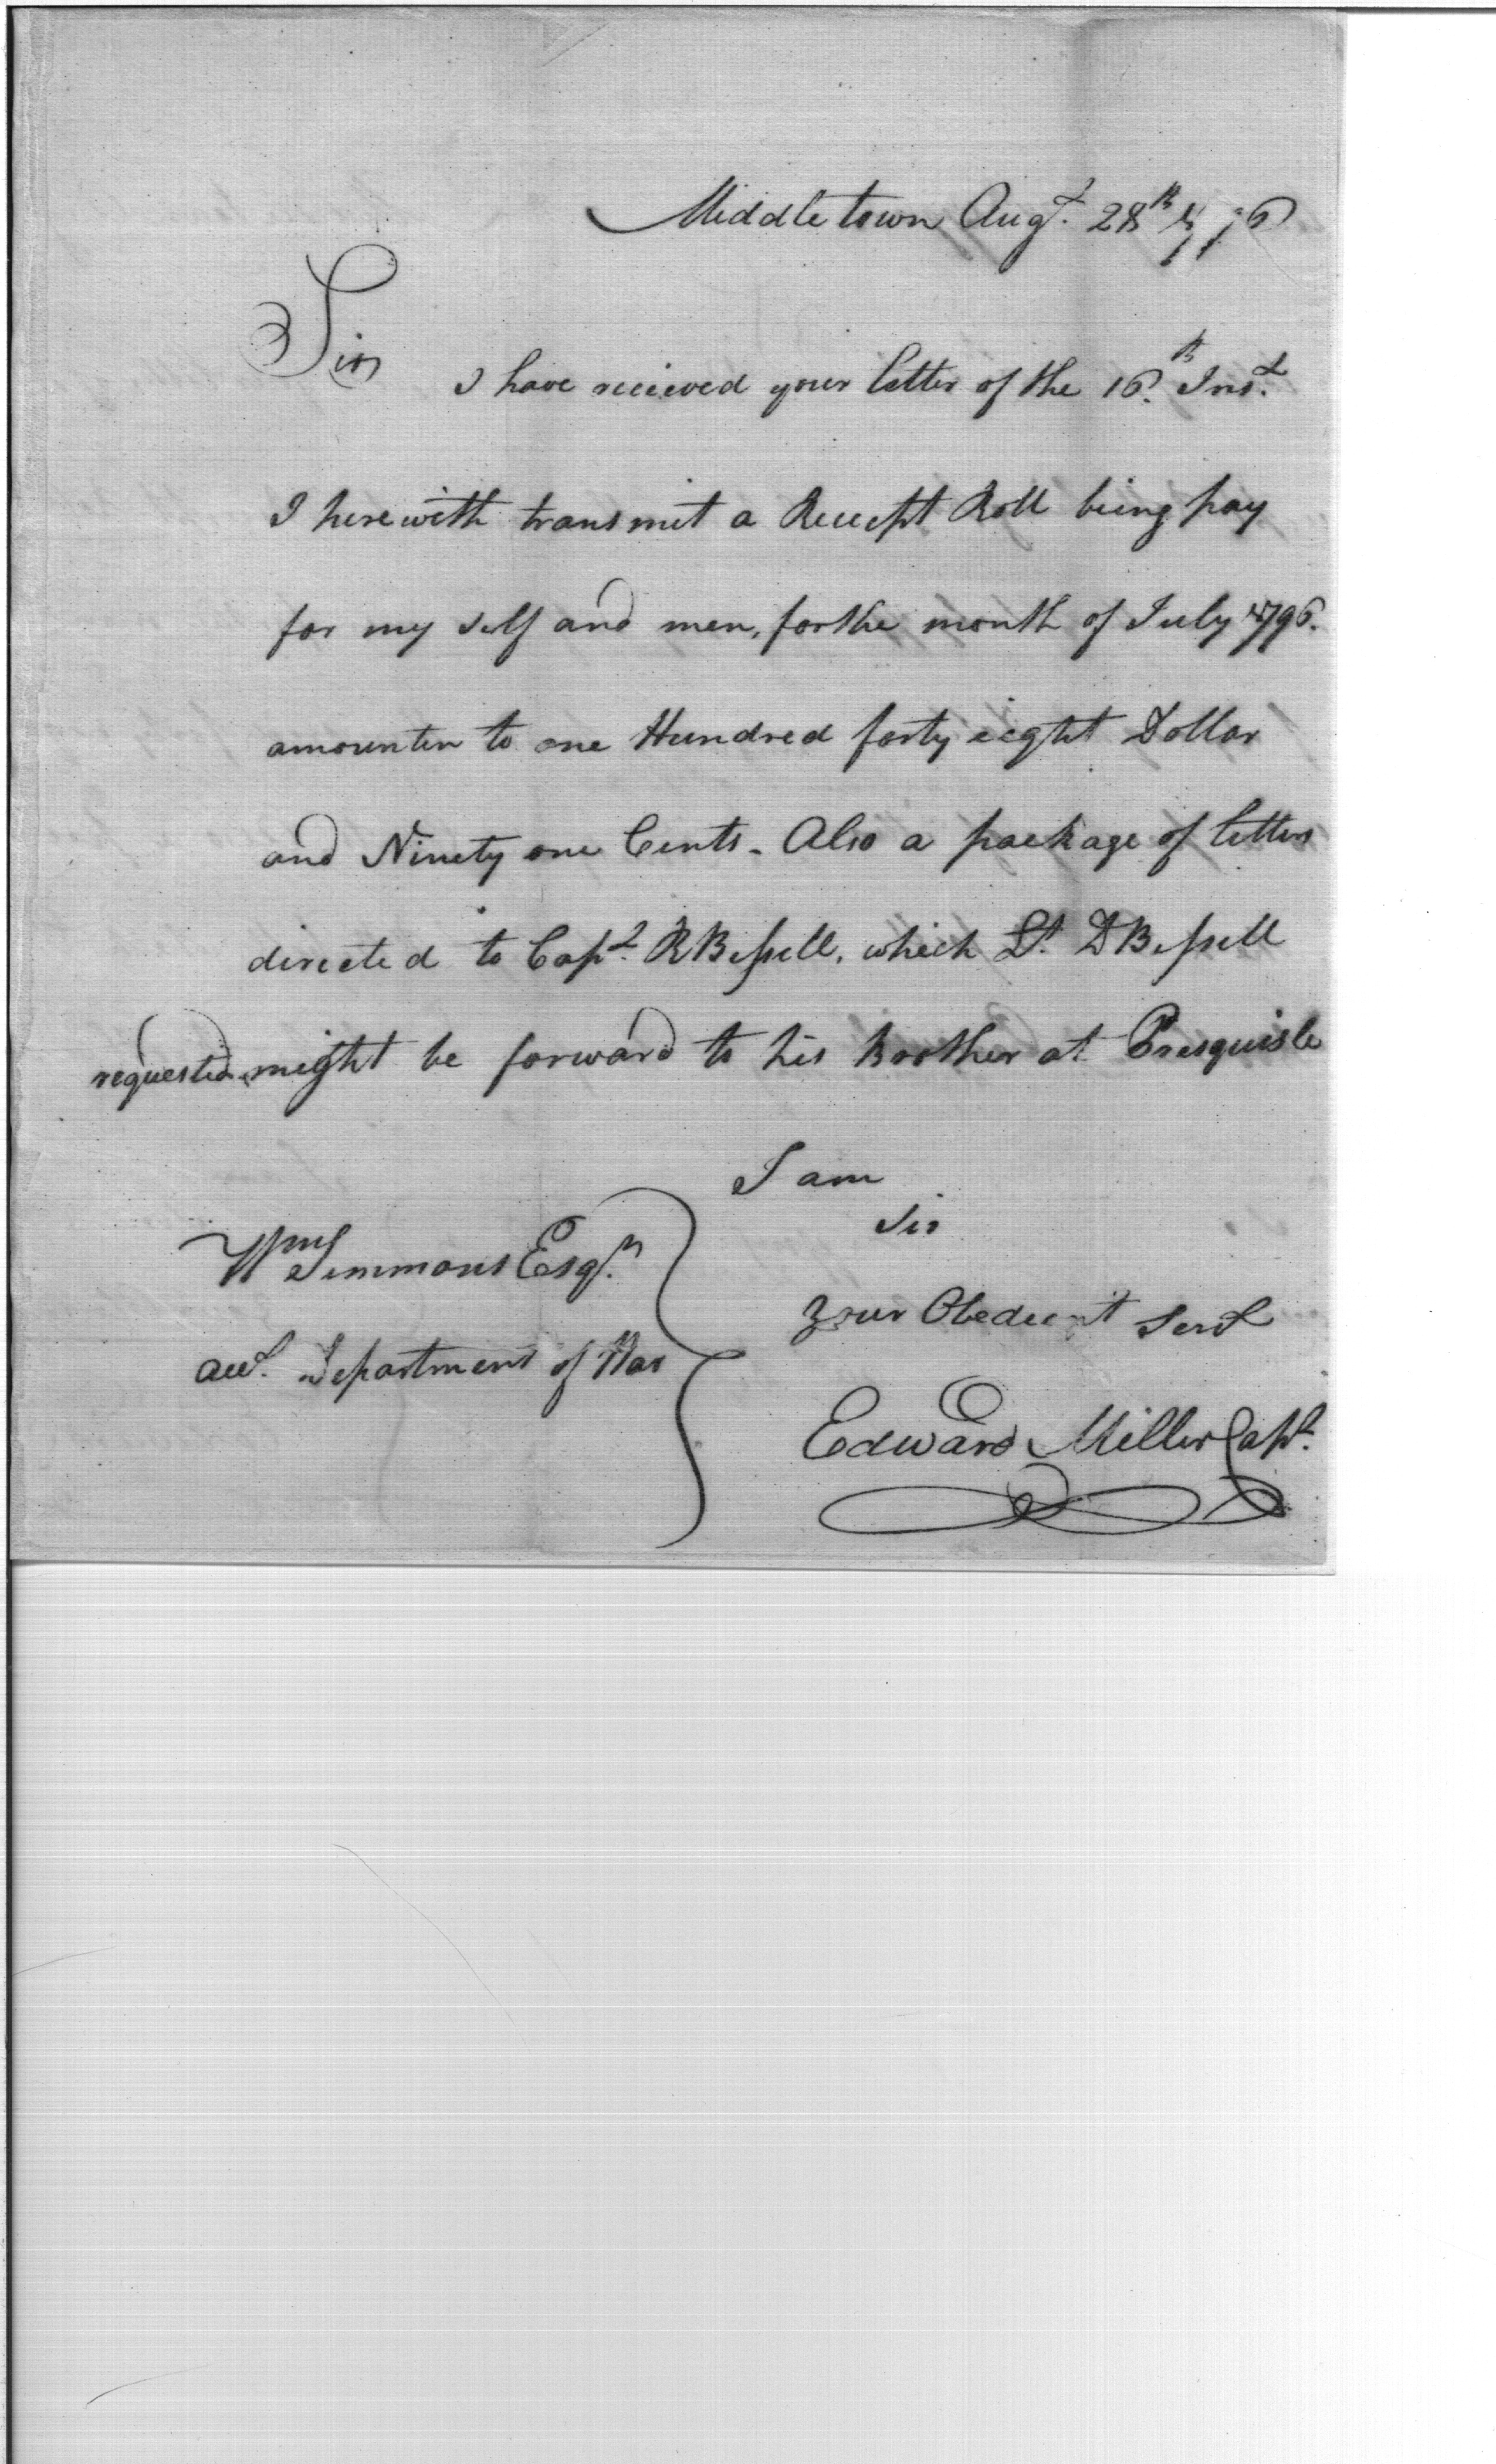 Middletown Augt. 28th 1796
Sir
I have recieved your letter of the 16th. Inst.
I herewith transmit a Receipt Roll being pay
for my self and men, for the month of July 1796.
amounten to one Hundred forty eight Dollar
and Ninety one Cents. Also a package of letters
directed to Capt. R Bissell, which Lt. D Bissell
requested might be forward to his Brother at Presquisle
I am
Sir
Your Obedient Servt
Wm Simmons Esqr.
acct. Department of War
Edward Miller Capt.